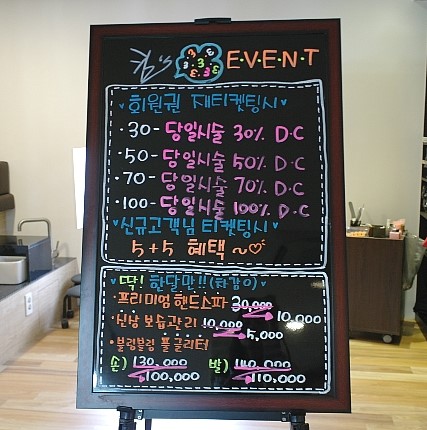 킴's EVENT
회원권 재티켓팅시
·30- 당일시술 30% D·C
·50- 당일시술 50% D·C
·70- 당일시술 70% D·C
·100- 당일시술 100% D·C
신규고객님 티켓팅시
5+5 혜택 ~♡
딱! 한달만!!
·프리미엄 핸드스파 30,000 10,000
보습관리 10,000 5,000
·블링블링 풀글리터
손) 130,000 발) 140,000
100,000 110,000